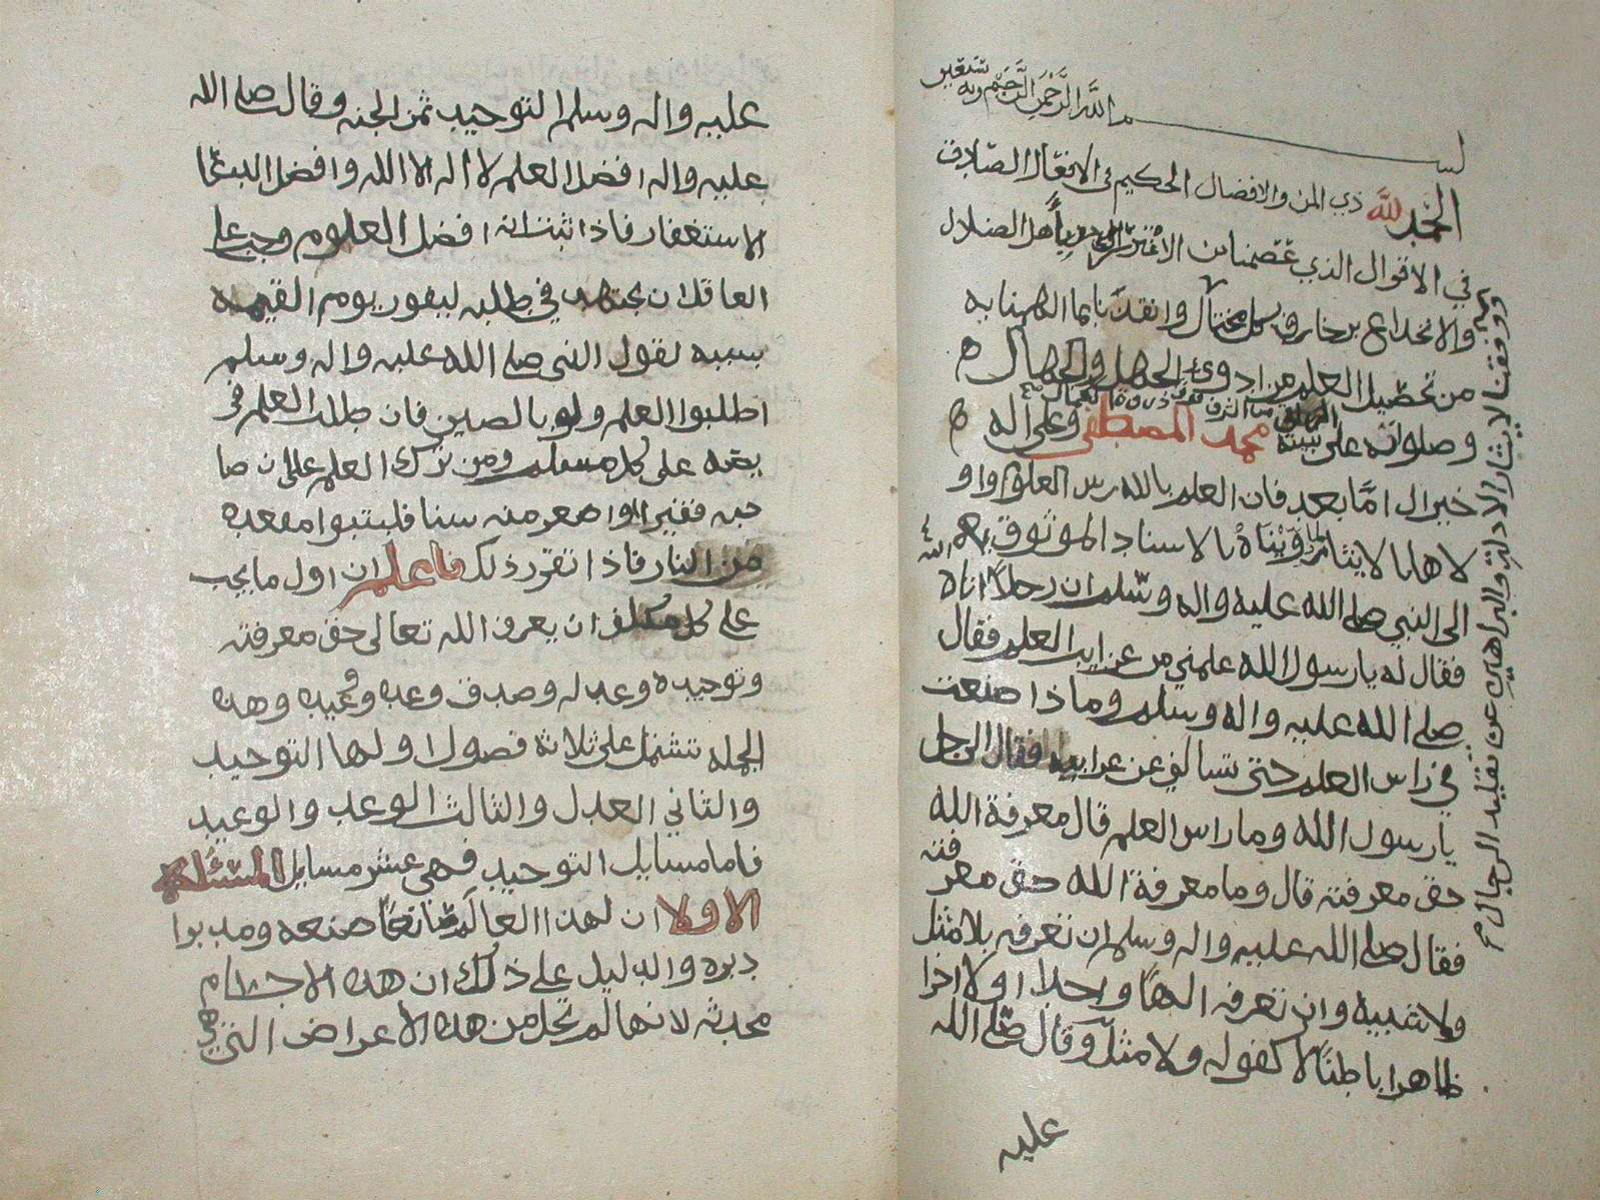 بسم الله الرحمن الرحيم وبه نستعين
الحمد لله ذي المن والافضال الحكيم في الافعال الصادق
في الاقوال الذي عصمنا من الاغترار باهل الضلال
والانخداع بزخارف كل محتال وانقذنا بما الهمنا به
من تحصيل العلم من ادوى الجهل والجهال
وصلواته على نبيه محمد المصطفى وعلى اله
خير ال اما بعد فان العلم بالله راس العلوم واو
لاها بالايثار لما رويناه بالاسناد الموثوق به
الى النبي صلى الله عليه واله وسلم ان رجلا اتاه
فقال له يا رسول الله علمني من غرايب العلم فقال
صلى الله عليه واله وسلم وماذا صنعت
في راس العلم حتى تسالني عن غرايبه فقال الرجل
يا رسول الله وما راس العلم قال معرفة الله
حق معرفته قال وما معرفة الله حق معرفته
فقال صلى الله عليه واله وسلم ان تعرفه بلا مثل
ولا شبيه وان تعرفه الها واحدا اولا اخرا
ظاهرا باطنا لا كفو له ولا مثل وقال صلى الله
عليه
ووفقنا لايثار الادلة والبراهين عن تقليد الرجال
عليه واله وسلم التوحيد ثمن الجنه وقال صلى الله
عليه واله افضل العلم لا اله الا الله وافضل الدعا
الاستغفار فاذا ثبت انه افضل العلوم وجب على
العاقل ان يجتهد في طلبه ليفوز يوم القيمه
بسببه لقول النبي صلى الله عليه واله وسلم
اطلبوا العلم ولو بالصين فان طلب العلم فر
يضه على كل مسلم ومن ترك العلم على ان صا
حبه فقير او اصغر منه سنا فليتبوا مقعده
من النار فاذا تقرر ذلك فاعلم ان اول ما يجب
على كل مكلف ان يعرف الله تعالى حق معرفته
وتوحيده وعدله وصدق وعده ووعيده وهذه
الجمله تشتمل على ثلاثة فصول اولها التوحيد
والثاني العدل والثالث الوعد والوعيد
فاما مسايل التوحيد فهي عشر مسايل المسئلة
الاولا ان لهذا العالم صانعا صنعه ومدبرا
دبره والدليل على ذلك ان هذه الاجسام
محدثه لانها لم تخل من هذه الاعراض التي هي